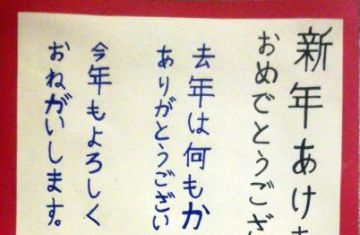 新年あけ
おめでとうござ
去年は何もか
ありがとうござい
今年もよろしく
おねがいします。